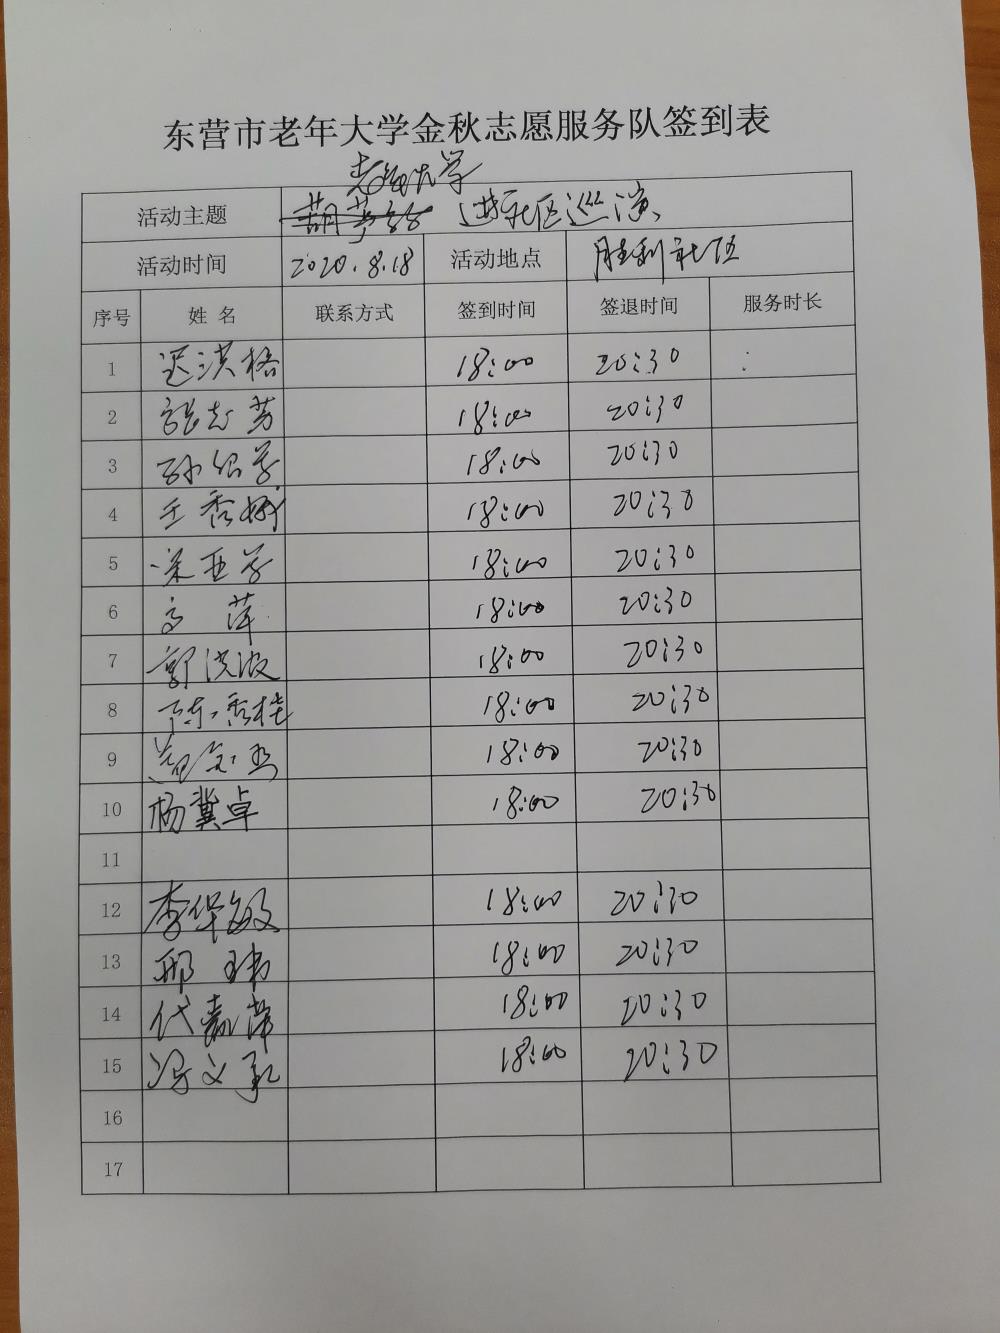 东营市老年大学金秋志愿服务队签到表
老年大学
活动主题 葫芦丝 进社区巡演
活动时间 2020.8.18 活动地点 胜利社区
序号 姓 名 联系方式 签到时间 签退时间 服务时长
1 迟洪格 18:00 20:30 :
2 张志芳 18:00 20:30
3 孙 18:00 20:30
4 王秀娥 18:00 20:30
5 梁亚芬 18:00 20:30
6 高 萍 18:00 20:30
7 郭洪波 18:00 20:30
8 陈秀桂 18:00 20:30
9 18:00 20:30
10 杨冀卓 18:00 20:30
11
12 李华敏 18:00 20:30
13 邢 玮 18:00 20:30
14 代嘉萍 18:00 20:30
15 冯文 18:00 20:30
16
17